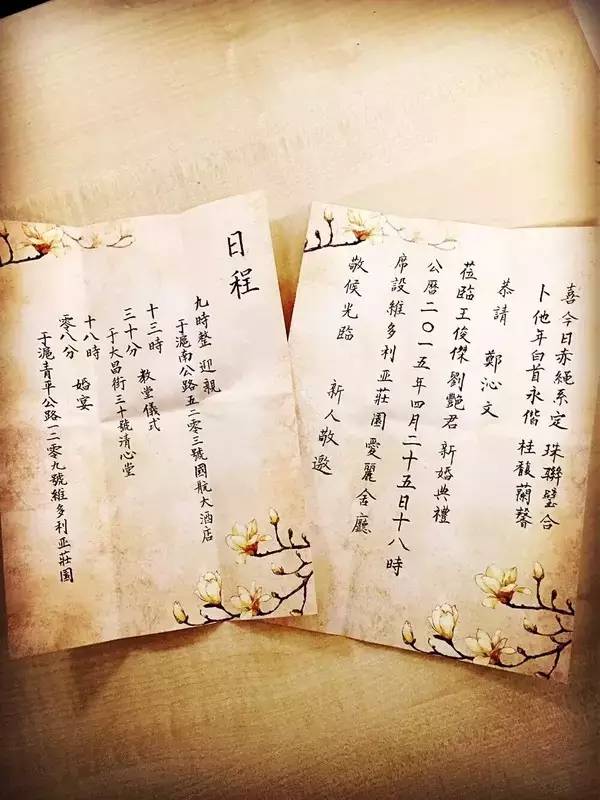 喜今日赤繩系定 珠聯璧合
卜他年白首永偕 桂馥蘭馨
恭請 鄭沁文
莅臨王俊傑劉艷君 新婚典禮
公曆二〇一五年四月二十五日十八時
席設維多利亚莊園愛麗舍廳
敬候光臨 新人敬邀
日程
九時整 迎親
于滬南公路五二零三號國航大酒店
十三時
三十分 教堂儀式
于大昌街三十號清心堂
十八時 婚宴
零八分
于滬青平公路一二零九號維多利亚莊園